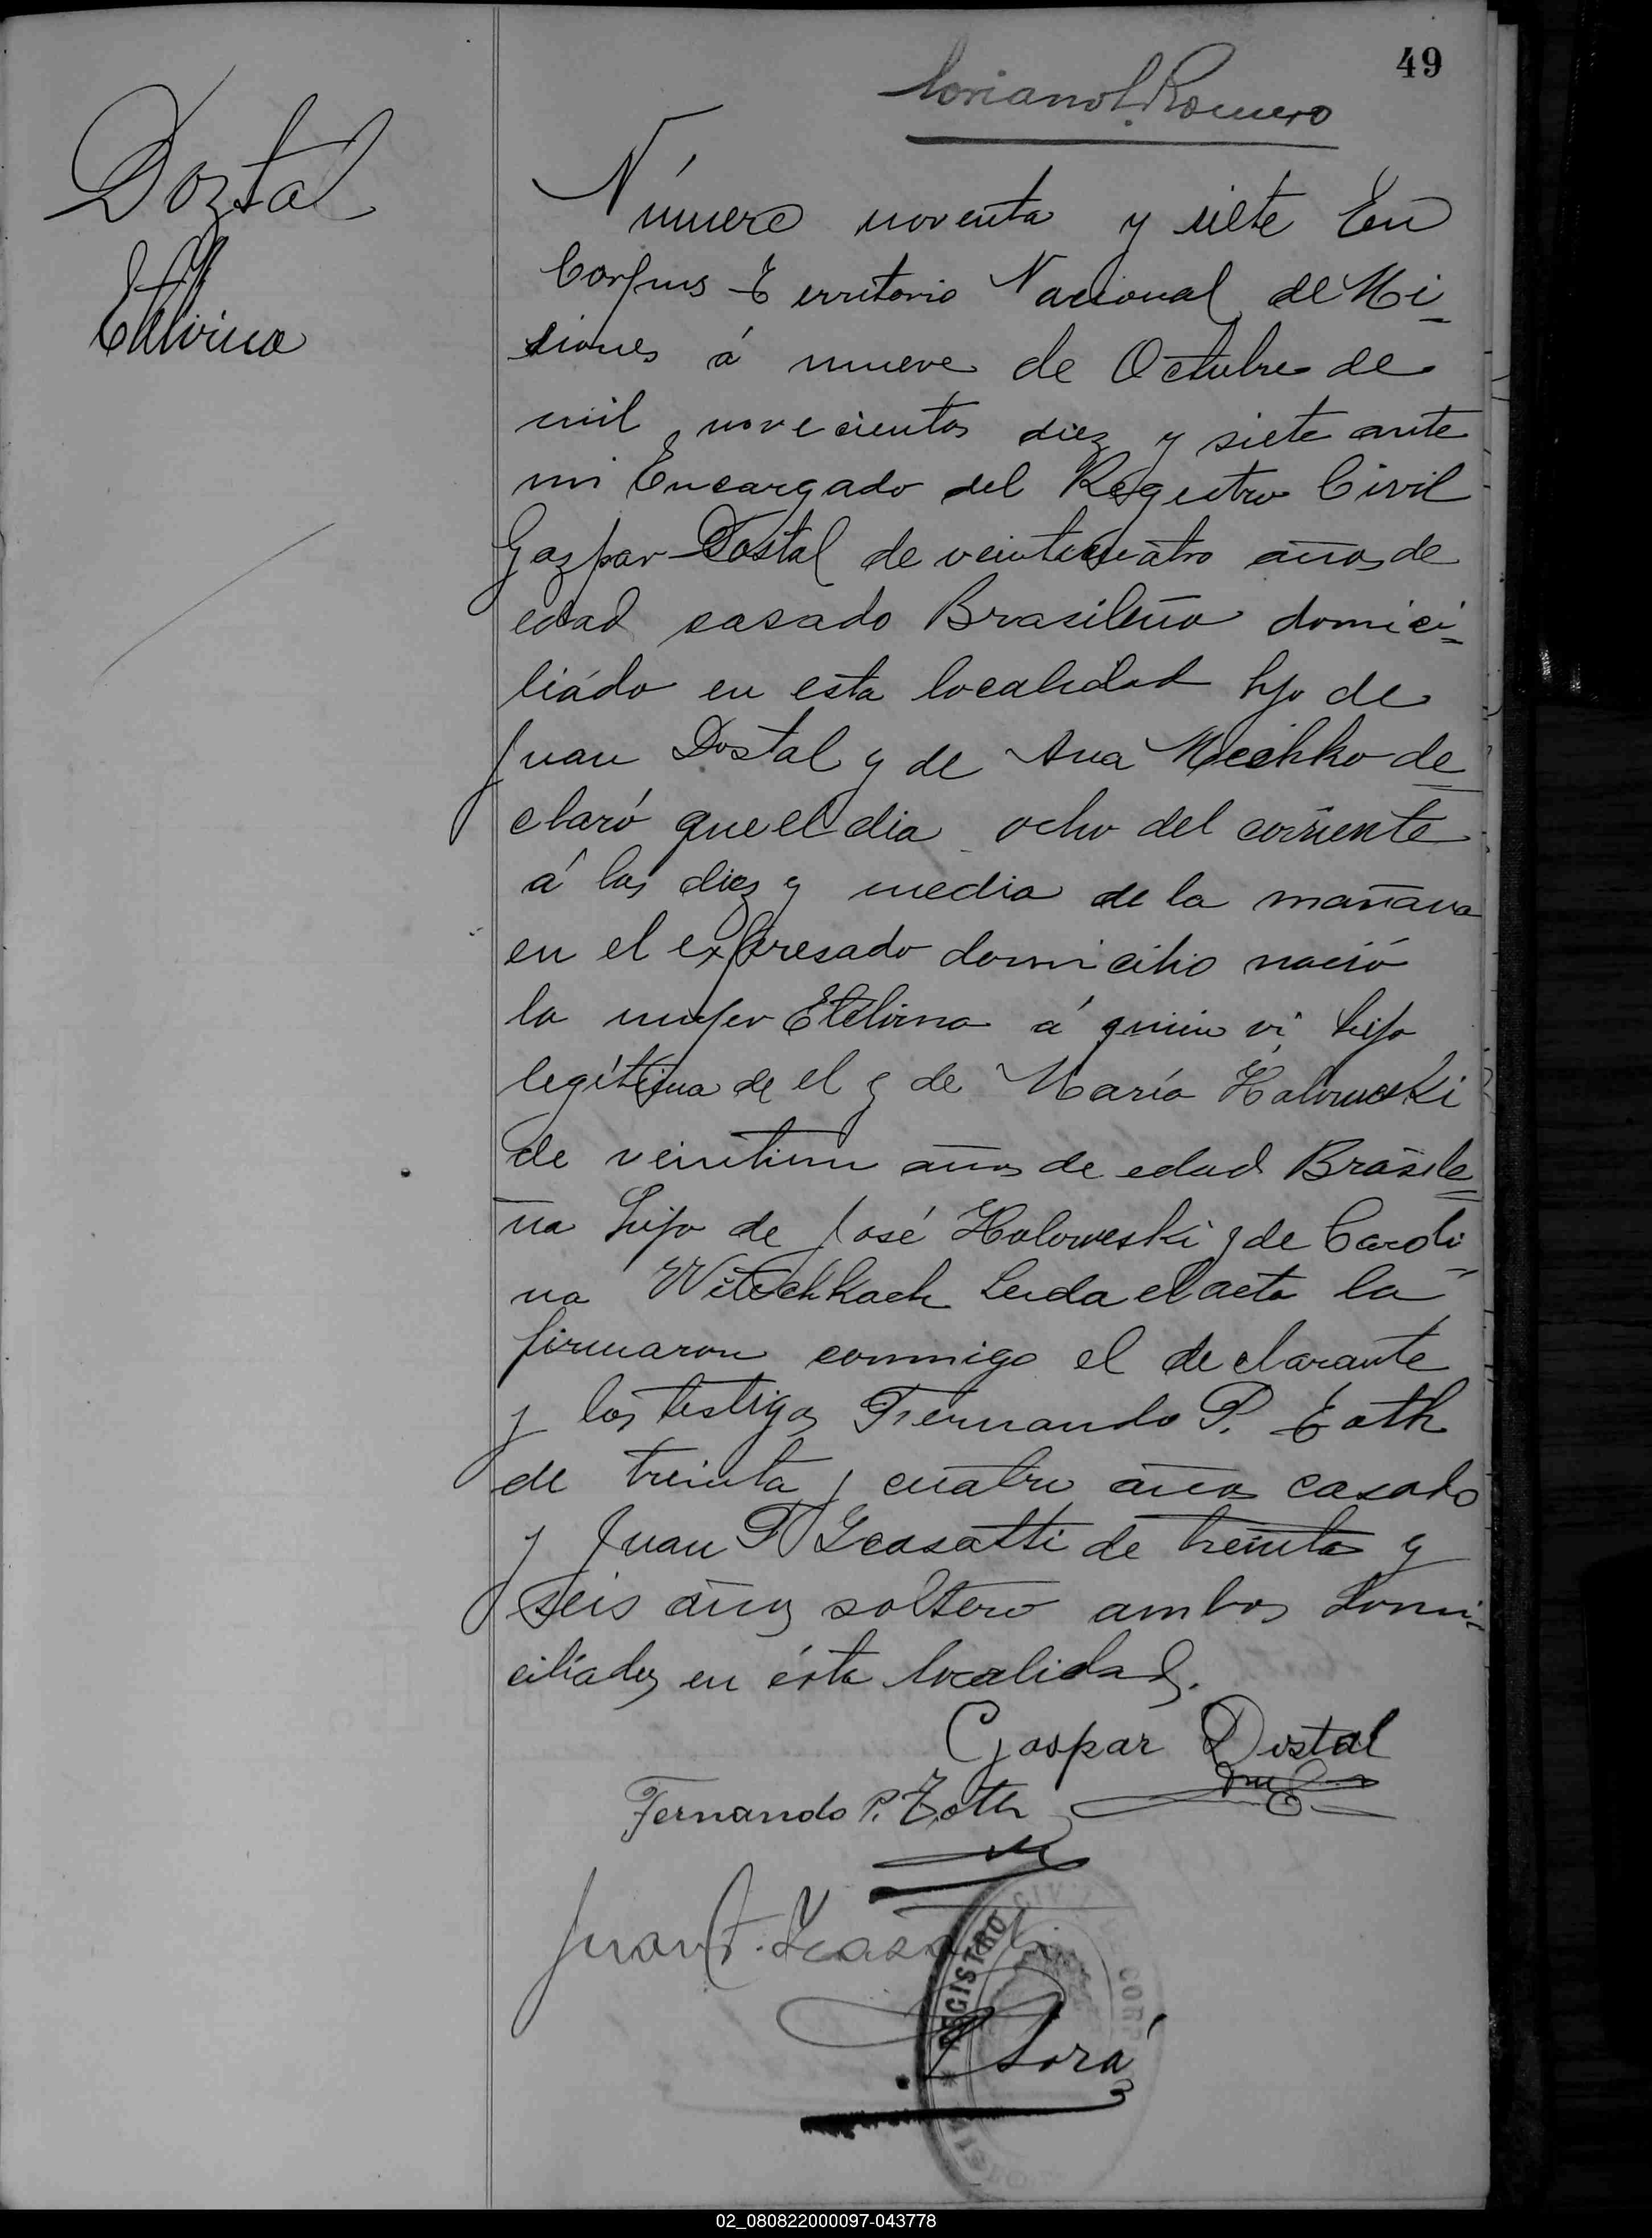 49
Soriano L. Romero
Doztal
Etelvina
Número noventa y siete En
Corpus Territorio Nacional de Mi=
siones á nueve de Octubre de
mil novecientos diez y siete ante
mi Encargado del Registro Civil
Gazpar Dostal de veinticuatro años de
edad casado Brasileño domici=
liádo en esta localidad hjo de
Juan Dostal y de Ana Mechko de=
claró que el dia ocho del corriente
á las diez y media de la mañana
en el expresado domicilio nació
la mujer Etelvina á quien vi hija
legítima de el y de María Holoweski
de veintiun años de edad Brasile=
ña hija de José Holoweski y de Caroli=
na Witechkach Leida el acta la
firmaron conmigo el declarante
y los testigos Fernando P. Toth
de treinta y cuatro años casado
y Juan F. de treinta y
seis años soltero ambos domi=
ciliados en ésta localidad.
Gaspar Dostal
Fernando P. Toth
Juan F.
REGISTRO CIVIL
CORP
Sorá
02_080822000097-043778